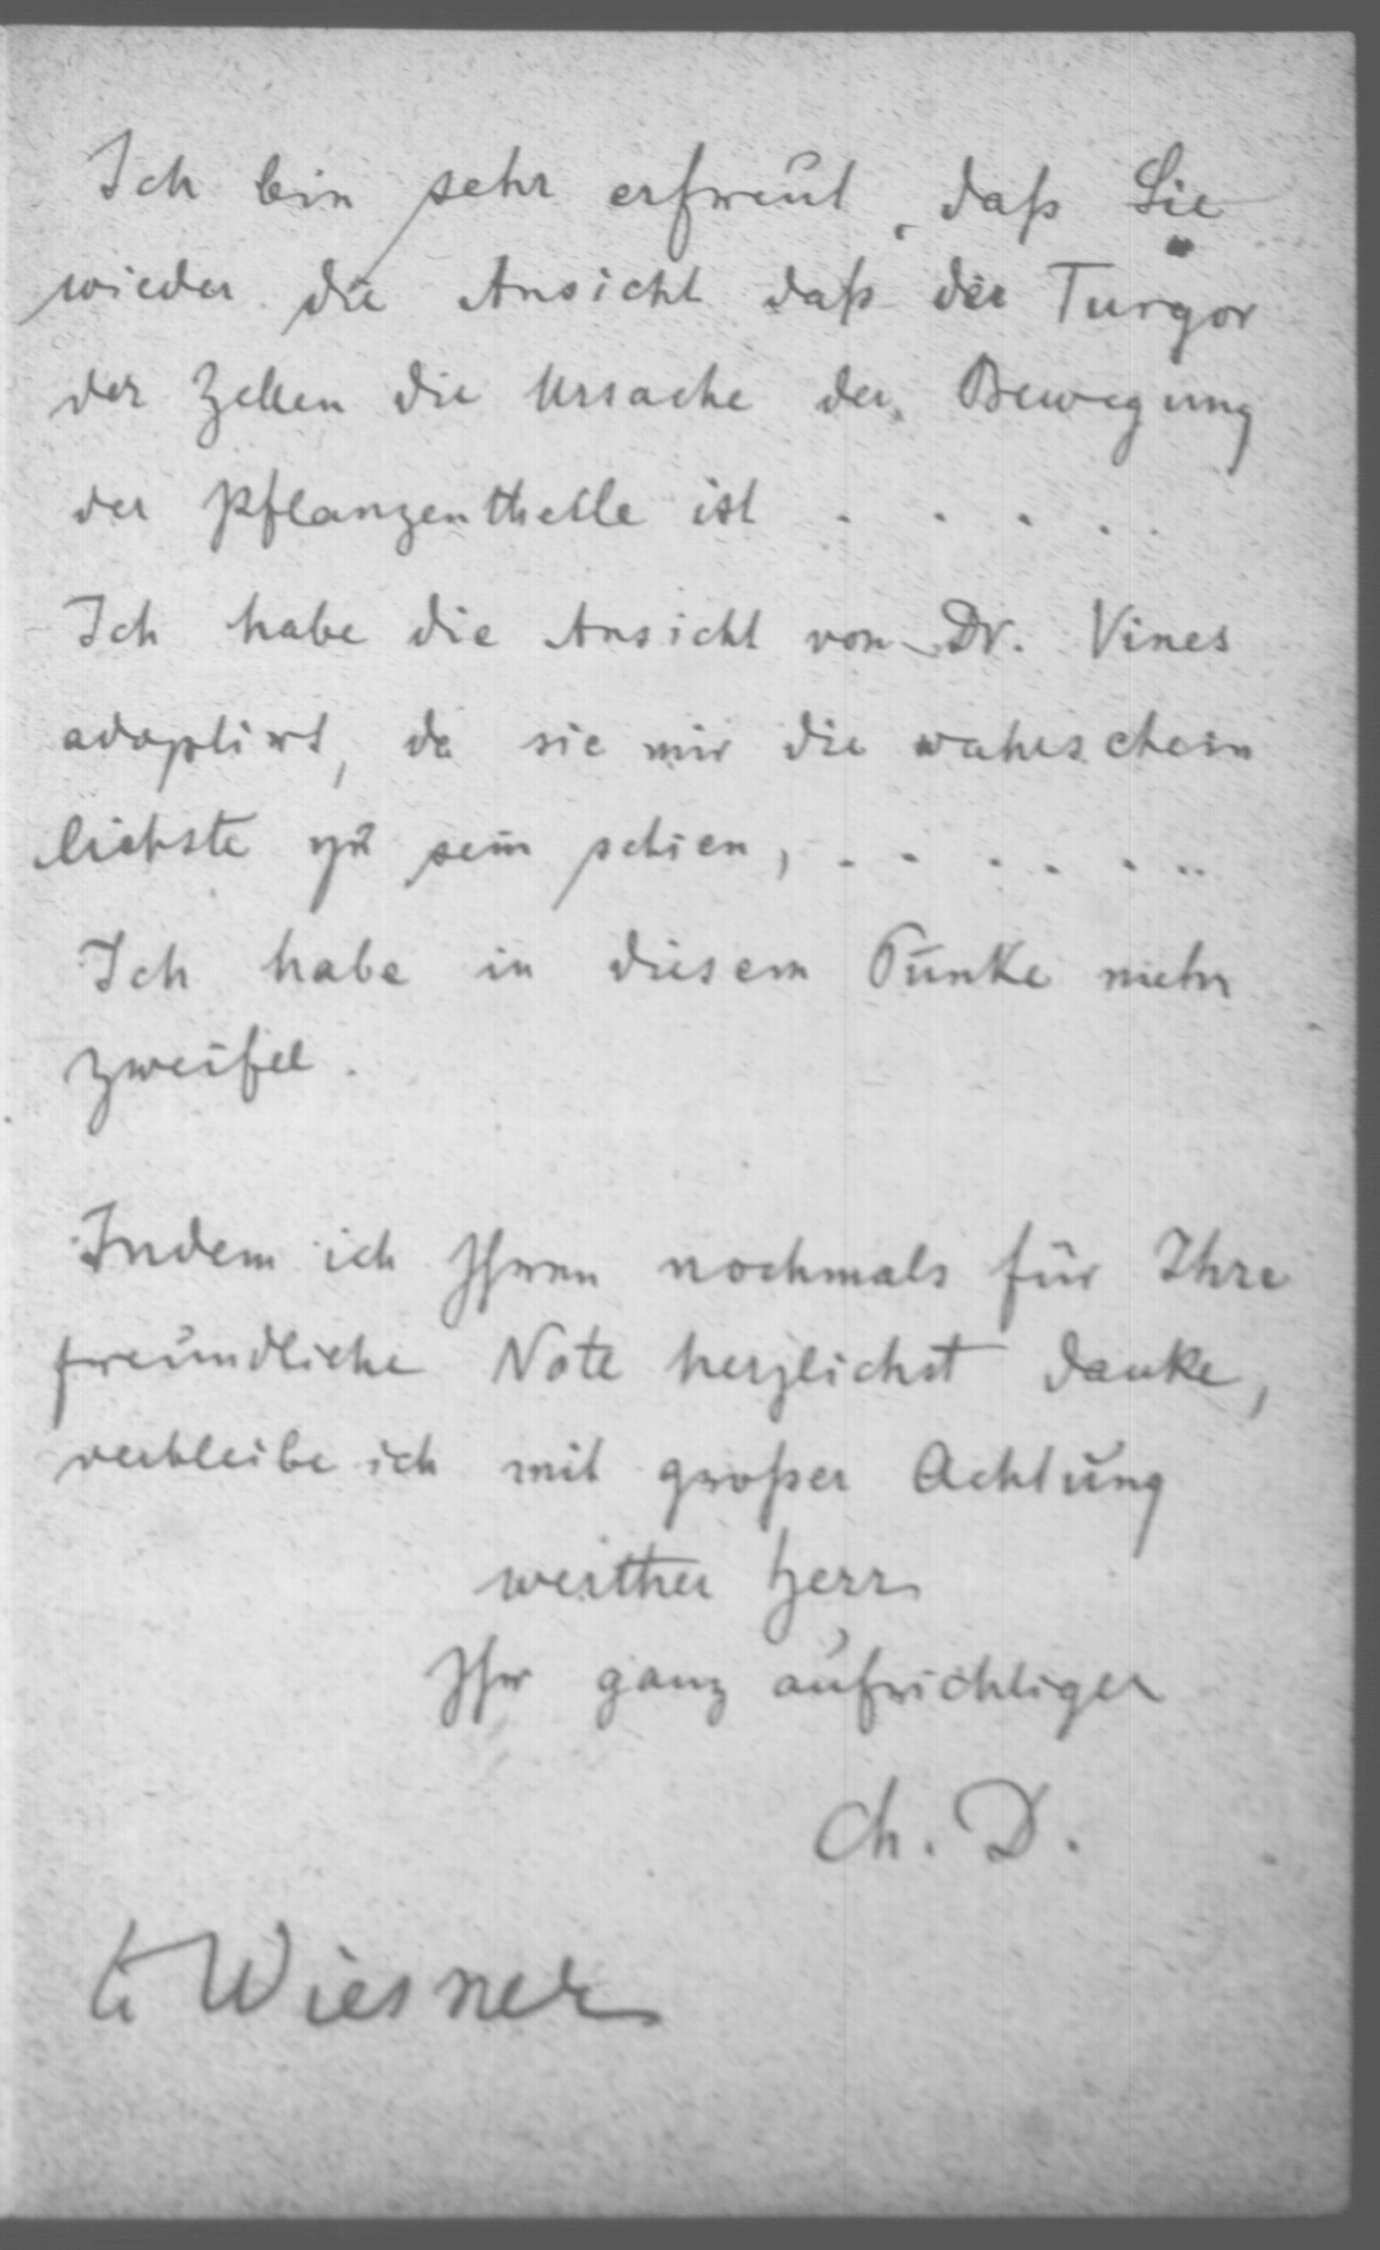 Ich bin sehr erfreut, daß Sie
wieder die Ansicht daß der Turgor
der Zellen die Ursache der Bewegung
der Pflanzentheile ist . . . . .
Ich habe die Ansicht von Dr. Vines
adoptirt, da sie mir die wahrschein
lichste zu sein schien, . . . . . . .
Ich habe in diesem Punke mehr
Zweifel.
Indem ich Ihnen nochmals für Ihre
freundliche Note herzlichst danke,
verbleibe ich mit großer Achtung
werther Herr
Ihr ganz aufrichtiger
Ch. D.
Wiesner